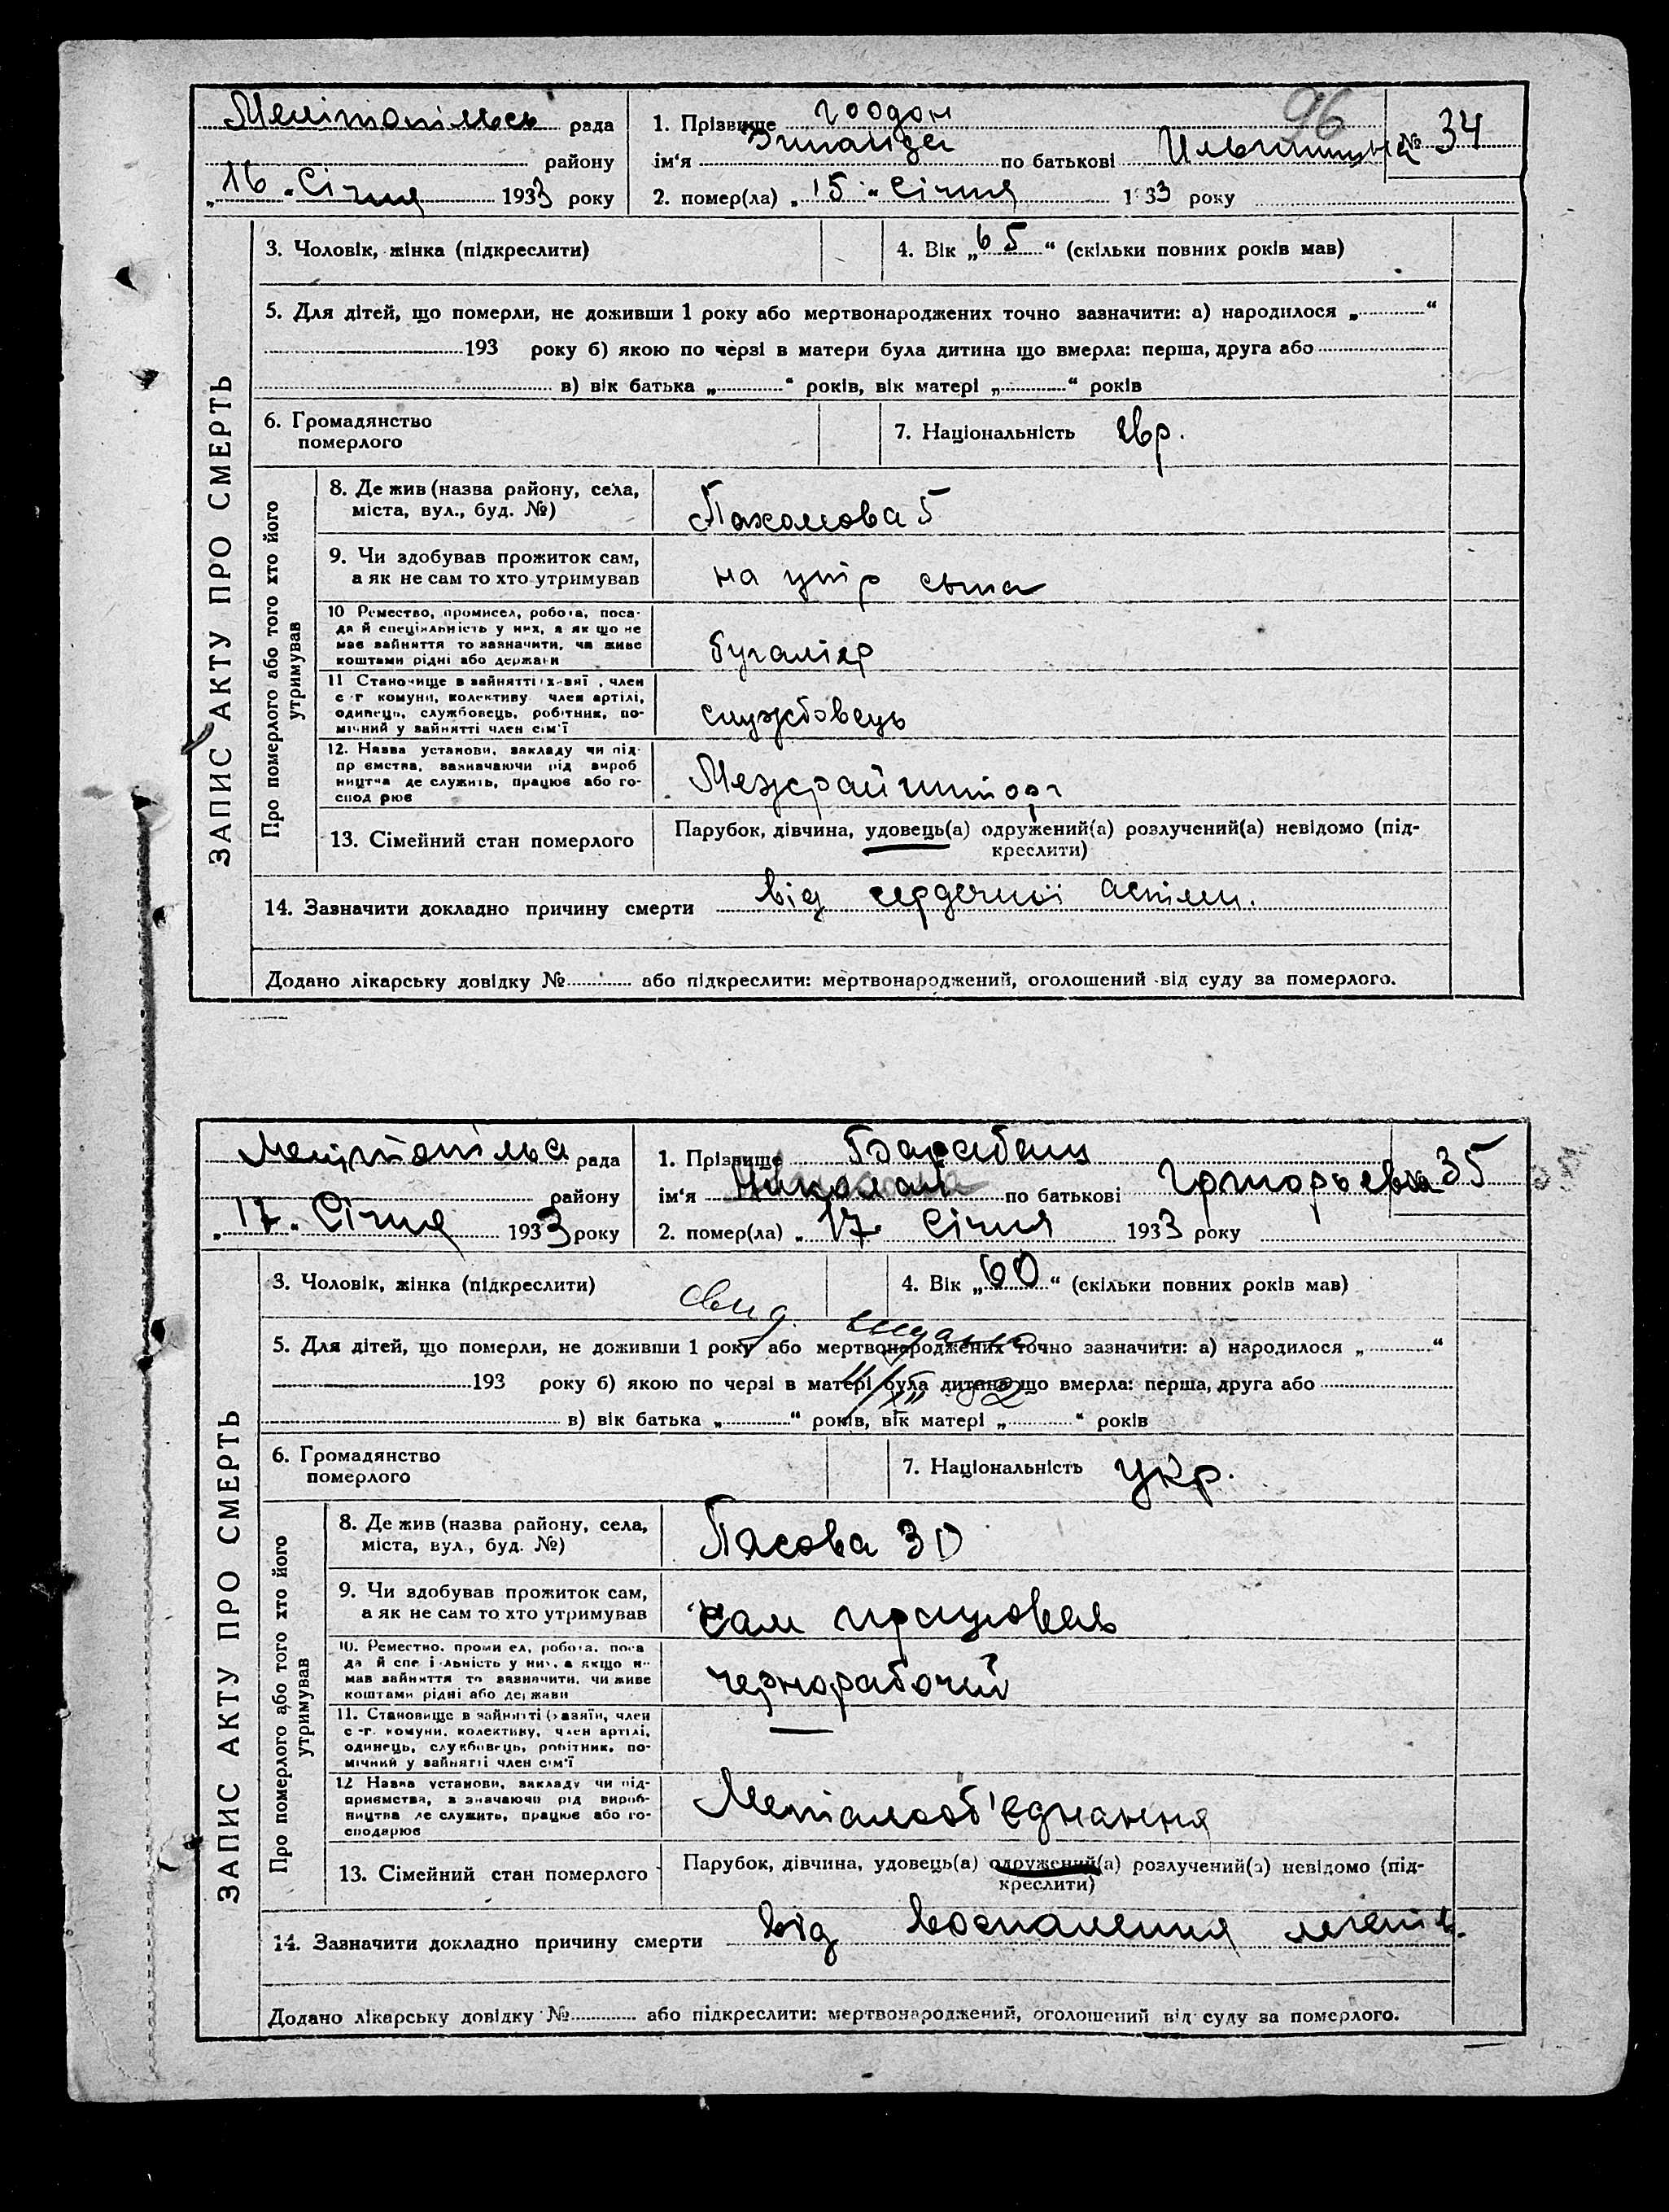 96
Мелітопільсь рада
району
„16“ Січня 1933 року
1. Прізвище Гоодон
ім‘я по батькові
№ 34
2. помер(ла) „15“ Січня 1933 року
ЗАПИС АКТУ ПРО СМЕРТЬ
3. Чоловік, жінка (підкреслити)
4. Вік „65“ (скільки повних років мав)
5. Для дітей, що померли, не доживши 1 року або мертвонароджених точно зазначити: а) народилося „ “
193 року б) якою по черзі в матери була дитина що вмерла: перша, друга або
в) вік батька „ “ років, вік матері „ “ років
6. Громадянство
померлого
7. Національність євр.
Про померлого або того хто його
утримував
8. Де жив (назва району, села,
міста, вул., буд. №)
Пахомова 5
9. Чи здобував прожиток сам,
а як не сам то хто утримував
на утр сына
10 Ремество, промисел, робота, поса-
да й спеціяльність у них, а як що не
мав зайняття то зазначити, чи живе
коштами рідні або держави
бугалтер
11 Становище в зайнятті
с-г комуни, колективу член артілі,
одинець, службовець, робітник, по-
мічний у зайнятті член сім‘ї
службовець
12. Назва установи, закладу чи під-
пр ємства, зазначаючи рід вироб
ництва де служить, працює або го-
спод рює
13. Сімейний стан померлого
Парубок, дівчина, удовець(а) одружений(а) розлучений(а) невідомо (під-
креслити)
14. Зазначити докладно причину смерти від сердечної астми.
Додано лікарську довідку № або підкреслити: мертвонароджений, оголошений від суду за померлого.
Мелітопільсь рада
району
„17“ Січня 1933 року
1. Прізвище Барабаш
ім‘я Николай по батькові Григорьевич
35
2. помер(ла) „17“ Січня 1933 року
ЗАПИС АКТУ ПРО СМЕРТЬ
3. Чоловік, жінка (підкреслити)
4. Вік „60“ (скільки повних років мав)
свид. выдано
5. Для дітей, що померли, не доживши 1 року або мертвонароджених точно зазначити: а) народилося „ “
193 року б) якою по черзі в матері була дитина що вмерла: перша, друга або
в) вік батька „ “ років, вік матері „ “ років
6. Громадянство
померлого
7. Національність укр.
Про померлого або того хто його
утримував
8. Де жив (назва району, села,
міста, вул., буд. №)
30
9. Чи здобував прожиток сам,
а як не сам то хто утримував
сам працював
10. Ремество, проми ел, робота, поса
да й спе і льність у них, а якщо н
мав зайняття то зазначити, чи живе
коштами рідні або держави
чернорабочий
11. Становище в зайнятті (хазяїн, член
с-г. комуни, колективу, член артілі,
одинець, службовець, робітник, по-
мічний у зайнятті член сім‘ї
12 Назва установи, закладу чи під-
приємства, з значаючи рід вироб-
ництва де служить, працює або го-
сподарює
Металооб‘єднання
13. Сімейний стан померлого
Парубок, дівчина, удовець(а) одружений(а) розлучений(а) невідомо (під-
креслити)
14. Зазначити докладно причину смерти від воспаления легенів.
Додано лікарську довідку № або підкреслити: мертвонароджений, оголошений від суду за померлого.